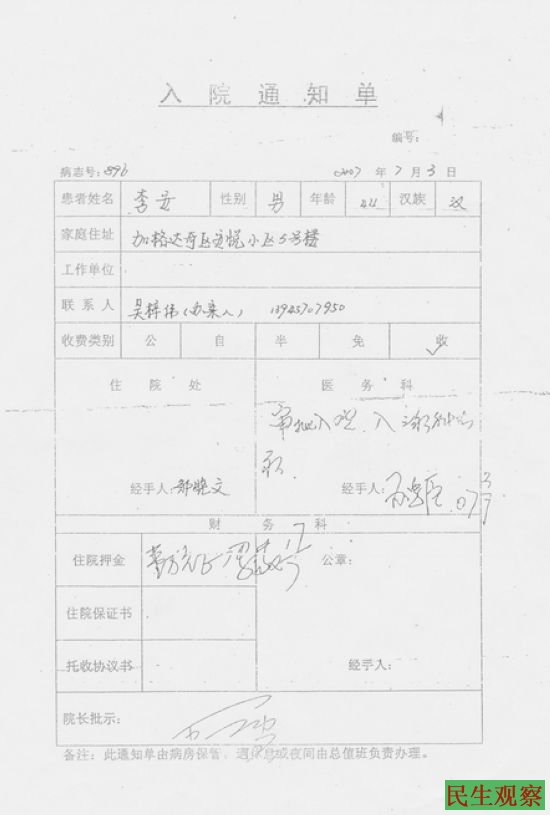 入院通知单
编号：
病志号：896 2007 年 7 月 3 日
患者姓名 李安 性别 男 年龄 44 汉族 汉
家庭住址 加格达奇区 小区5号楼
工作单位
联系人 吴梓伟（办案人） 13945707950
收费类别 公 自 半 免 收
住院处 医务科
入 入
经手人： 郑晓文 经手人：
财务科
住院押金 公章：
住院保证书
托收协议书 经手人：
院长批示：
备注：此通知单由病房保管，遇休息或夜间由总值班负责办理。
民生观察